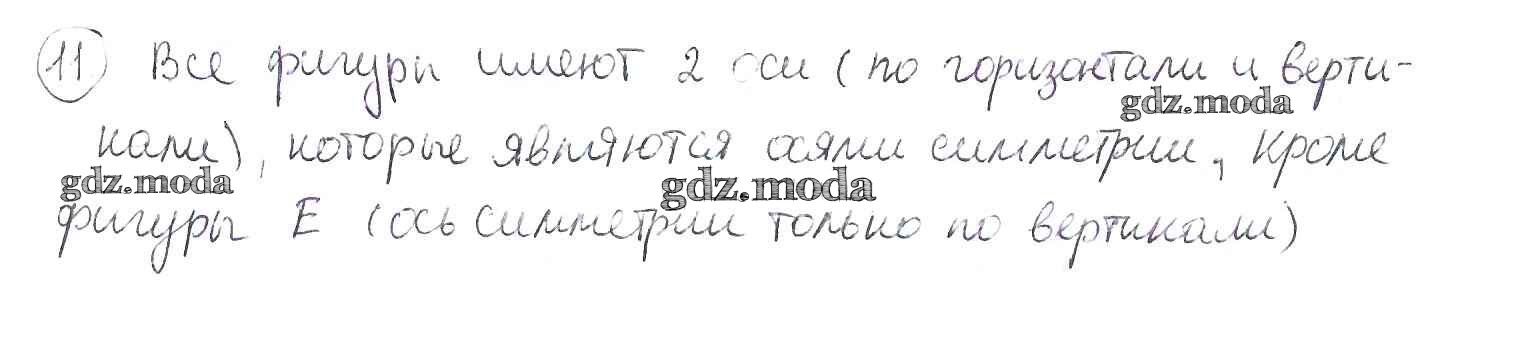 11 Все фигуры имеют 2 оси (по горизонтали и верти-
gdz.moda
кали), которые являются осями симметрии, кроме
gdz.moda gdz.moda
фигуры Е (ось симметрии только по вертикали)